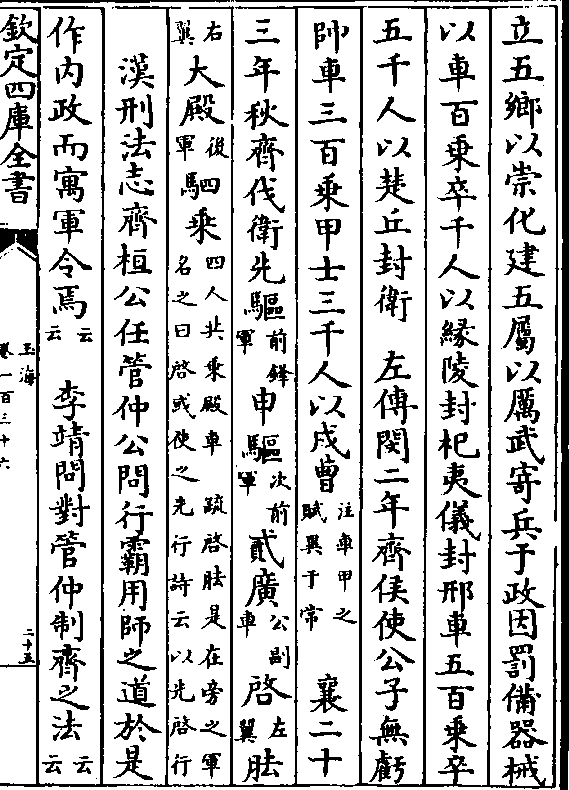 立五鄉以崇化建五屬以厲武寄兵于政因罰備器械
以車百乗卒千人以縁陵封杞夷儀封邢車五百乗卒
五千人以楚丘封衛　左傳閔二年齊侯使公子無虧
帥車三百乗甲士三千人以戍曹注車甲之賦異于常　襄二十
三年秋齊伐衛先驅前鋒軍申驅次前軍貳廣公副車啓左翼胠
右翼大殿後軍駟乗四人共乗殿車　疏啓胠是在旁之軍名之曰啓或使之先行詩云以先啓行
漢刑法志齊桓公任管仲公問行霸用師之道於是
作内政而寓軍令焉云云　李靖問對管仲制齊之法云云
欽定四庫全書
玉海
卷一百三十六
二十五